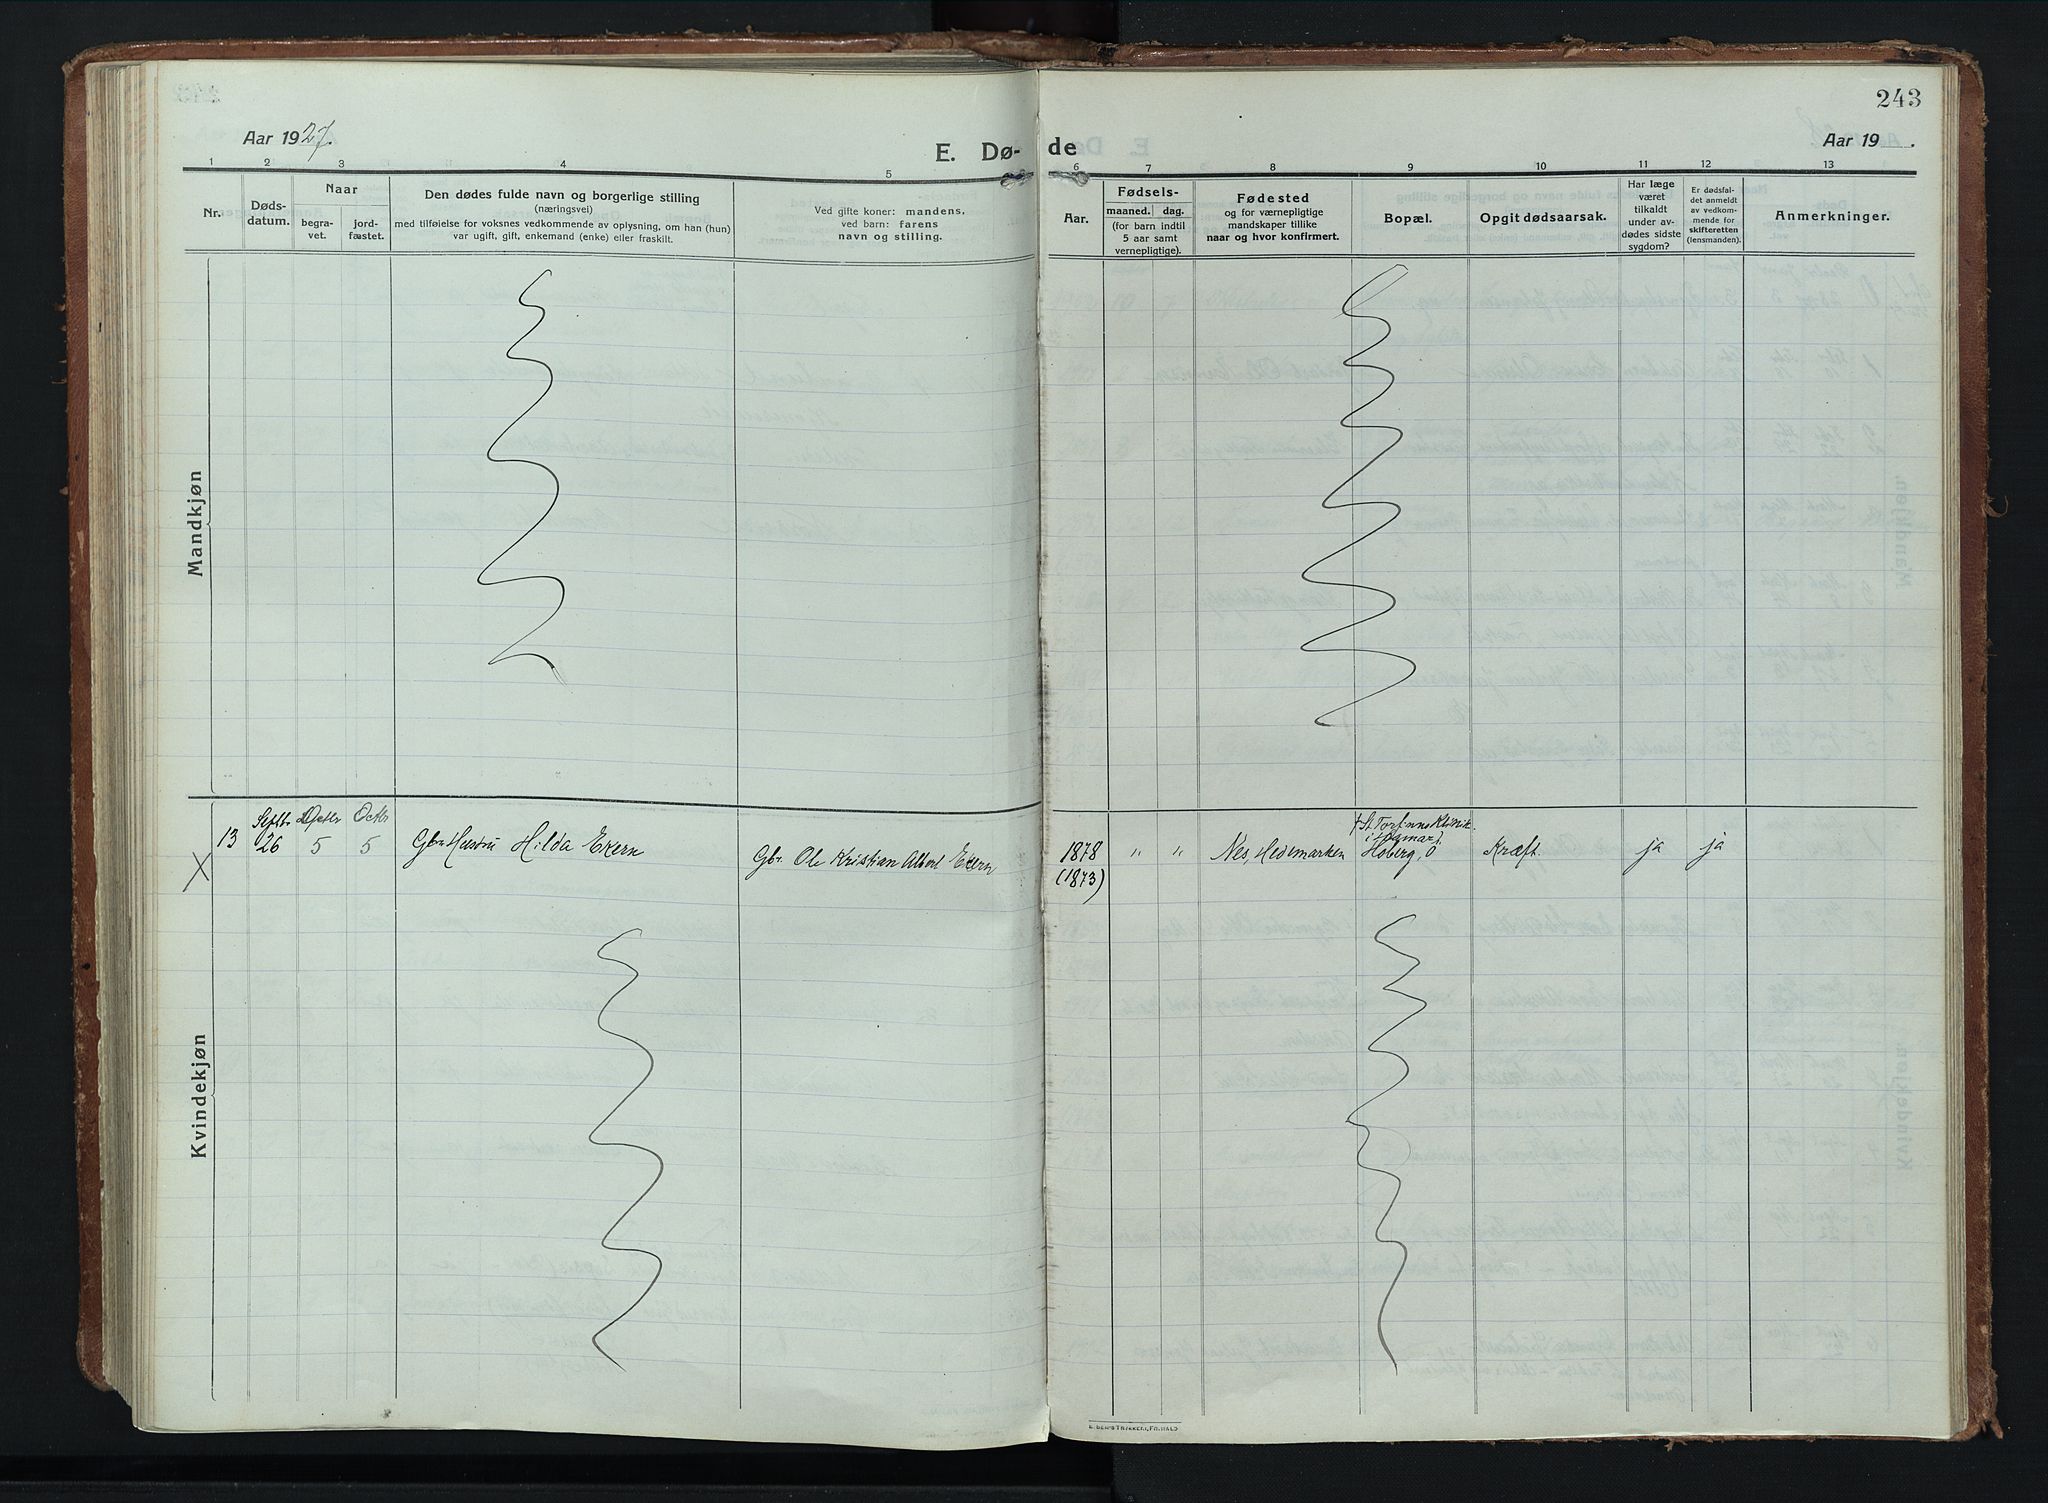 243
Aar 1927.
E. Dø- de
Aar 19 .
1 2 3 4 5 6 7 8 9 10 11 12 13
Nr.
Døds-
datum.
Naar
begra-
vet.
jord-
fæstet.
Den dødes fulde navn og borgerlige stilling
(næringsvei)
med tilføielse for voksnes vedkommende av oplysning, om han (hun)
var ugift, gift, enkemand (enke) eller fraskilt.
Ved gifte koner: mandens,
ved barn: farens
navn og stilling.
Aar.
Fødsels-
maaned. dag.
(for barn indtil
5 aar samt
vernepligtige).
Fødested
og for værnepligtige
mandskaper tillike
naar og hvor konfirmert.
Bopæl.
Opgit dødsaarsak.
Har læge
været
tilkaldt
under av-
dødes sidste
sygdom?
Er dødsfal-
det anmeldt
av vedkom-
mende for
skifteretten
(lensmanden).
Anmerkninger.
Mandkjøn
Kvindekjøn
X
13
Septbr
26
Octbr
5
Octbr
5
Hilda Ekern
Gbr. Ole Kristian Albert Ekern
1878
(1873)
" "
Nes, Hedemarken
† St. Torfinns Klinik
i Hamar
Hoberg, Ø
Kræft.
ja ja